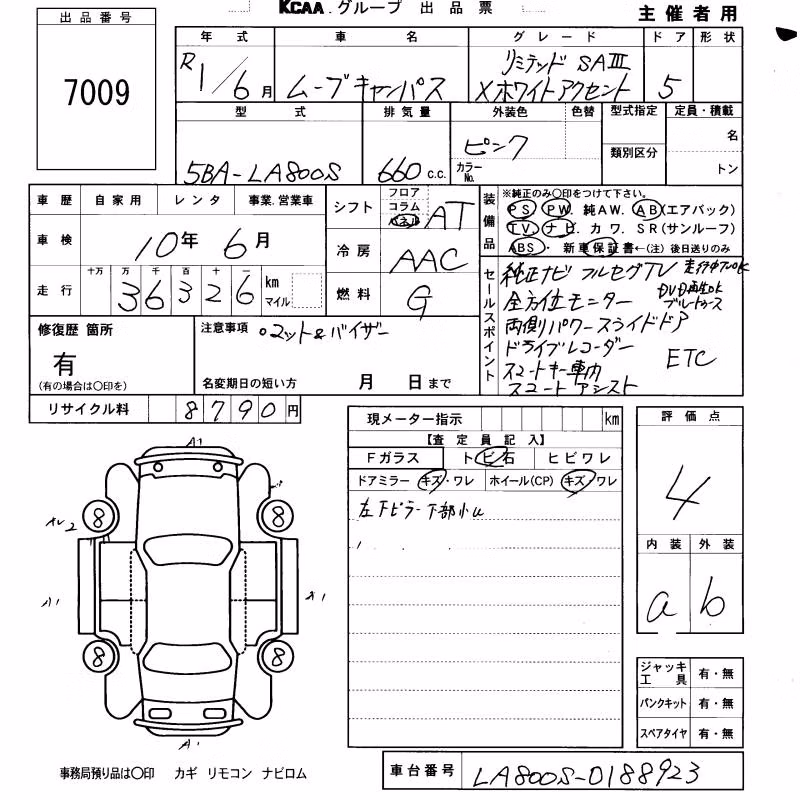 KCAA.グループ 出品票
主催者用
出品番号
7009
年式 車名 グレード ドア 形状
R1/6月 ムーブキャンバス リミテッド SAⅢ
Xホワイトアクセント 5
型式 排気量 外装色 色替 型式指定 定員・積載
5BA-LA800S 660 c.c. ピンク
カラーNo.
類別区分
名
トン
車歴 自家用 レンタ 事業.営業車
車検 10年 6月
走行 十万 万 千 百 十 一
36326 km
マイル
シフト フロア
コラム
パネル
AT
冷房 AAC
燃料 G
装備品
※純正のみ○印をつけて下さい。
PS PW. 純AW. AB(エアバック)
TV. ナビ. カワ. SR(サンルーフ)
ABS・ 新車保証書←(注) 後日送りのみ
セールスポイント
純正ナビ フルセグTV
全方位モニター DVD再生OK
ブルートゥース
両側パワースライドドア
ドライブレコーダー
ETC
スマートキー 車内
スマートアシスト
修復歴 箇所
有
(有の場合は○印を)
注意事項
名変期日の短い方 月 日まで
リサイクル料 8790円
現メーター指示 km
【査定員記入】
Fガラス トビ石 ヒビワレ
ドアミラー キズ・ワレ ホイール(CP) キズ/ワレ
評価点
4
内装 外装
a b
ジャッキ
工具 有・無
パンクキット 有・無
スペアタイヤ 有・無
A1
8
8
A1
A1
8
8
A1
事務局預り品は○印 カギ リモコン ナビロム
車台番号 LA800S-0188923